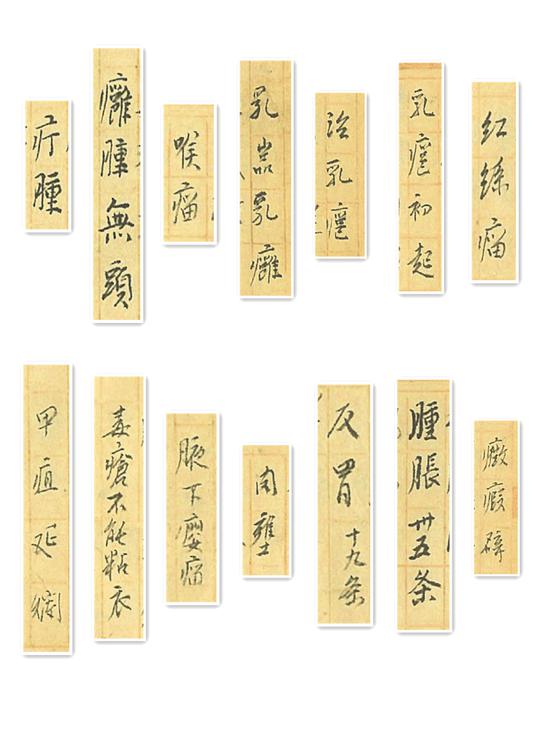 疔腫
癰腫無頭
喉瘤
乳嵒乳癰
治乳㿈
乳㿈初起
紅絲瘤
甲疽延爛
毒瘡不能粘衣
腋下癭瘤
肉壅
反胃十九条
腫脹卅五条
癥瘕